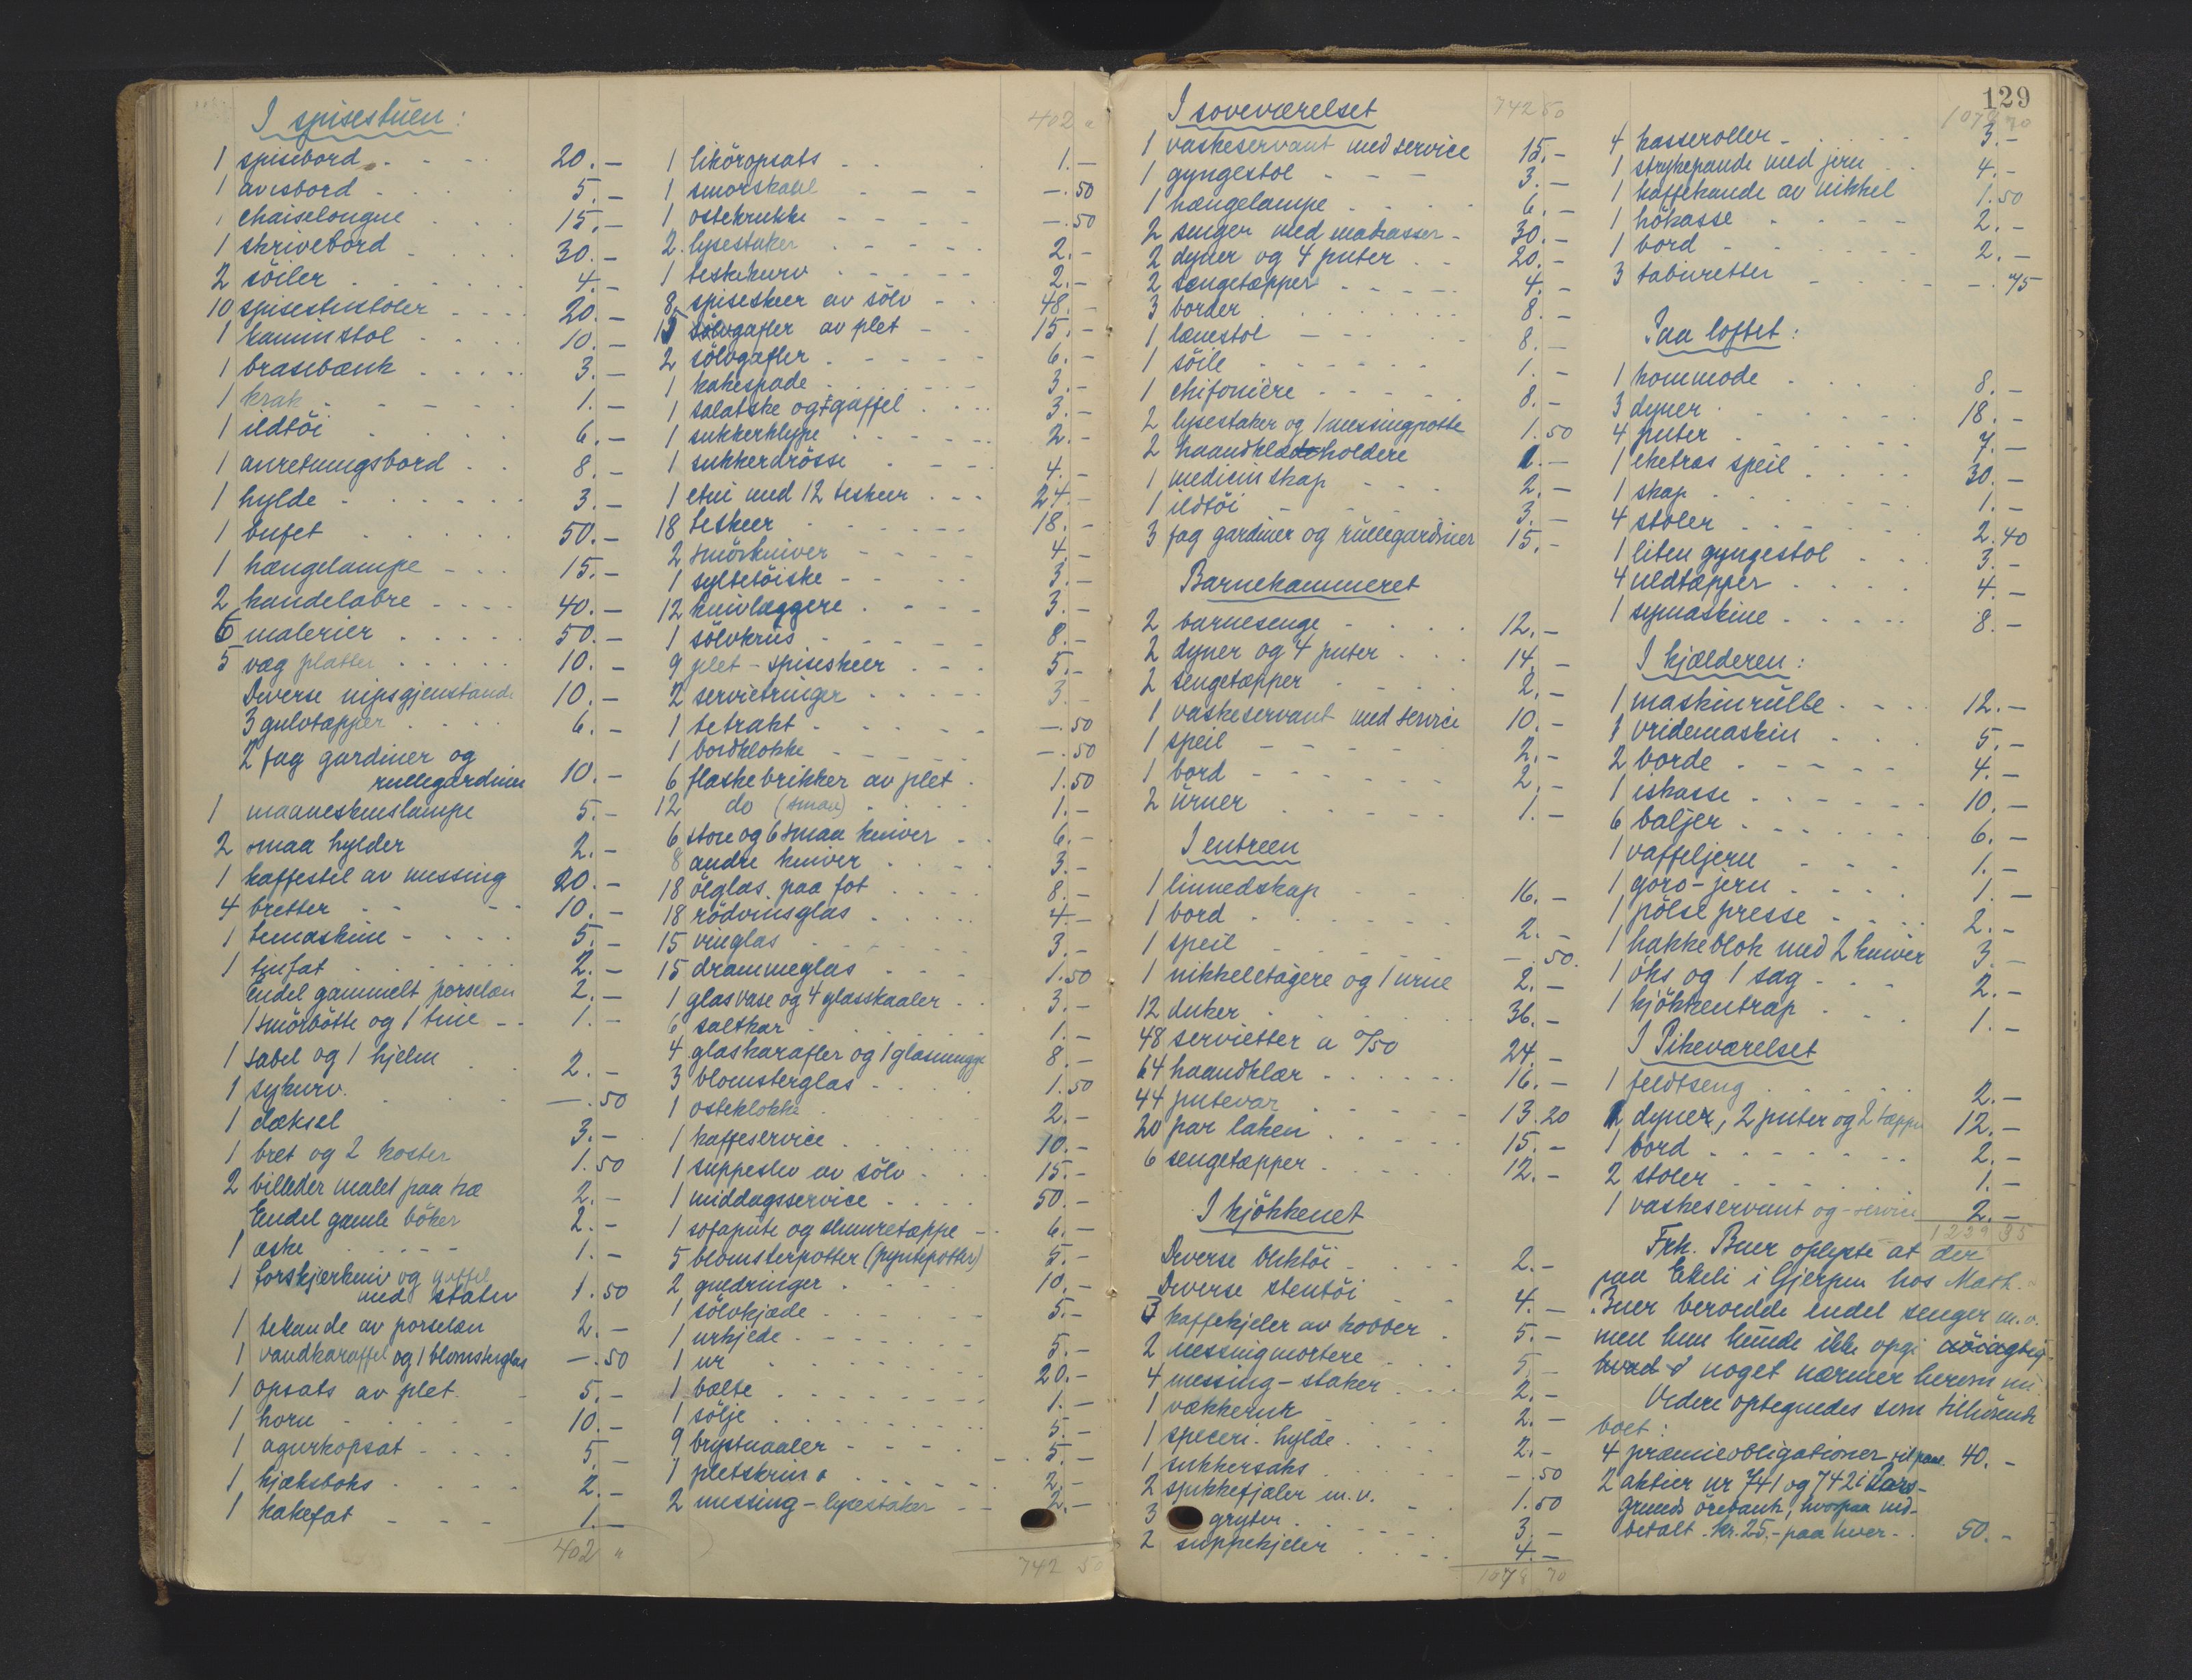 I spisestuen:
1 spisebord 20.-
1 avisbord 5.-
1 chaiselongue 15.-
1 skrivebord 30.-
2 söiler 4.-
10 spisestustoler 20.-
1 kaminstol 10.-
1 brasebænk 3.-
1 krak 1.-
1 ildtöi 6.-
1 anretningsbord 8.-
1 hylde 3.-
1 bufet 50.-
1 hængelampe 15.-
2 kandelabre 40.-
6 malerier 50.-
5 væg platter 10.-
Diverse nipsgjenstande 10.-
3 gulvtæpper 6.-
2 fag gardiner og
rullegardiner 10.-
1 maaneskinslampe 5.-
2 smaa hylder 2.-
1 kaffestel av messing 20.-
4 bretter 10.-
1 temaskine 5.-
1 tinfat 2.-
Endel gammelt porselæn 2.-
1 smörbötte og 1 tine 1.-
1 sabel og 1 hjelm 2.-
1 sykurv -.50
1 dæksel 3.-
1 bret og 2 koster 1.50
2 billeder malet paa træ 2.-
Endel gamle böker 2.-
1 æske 1.-
1 forskjærkniv og gaffel
med stativ 1.50
1 tekande av porselæn 2.-
1 vandkaraffel og 1 blomsterglas -.50
1 opsats av plet 5.-
1 horn 10.-
1 agurkopsat 5.-
1 kjæksboks 2.-
1 kakefat 1.-
402 "
402 "
1 liköropsats 1.-
1 smörskaal -.50
1 ostekrukke -.50
2 lysestaker 2.-
1 teskekurv 2.-
8 spiseskeer av sölv 48.-
15 sölvgafler av plet 15.-
2 sölvgafler 6.-
1 kakespade 3.-
1 salatske og 1 gaffel 3.-
1 sukkerklype 2.-
1 sukkerdrösse 4.-
1 etui med 12 teskeer 24.-
18 teskeer 18.-
2 smörkniver 4.-
1 syltetöiske 3.-
12 knivlæggere 3.-
1 sölvkrus 8.-
9 plet-spiseskeer 5.-
2 servietringer 3.-
1 tetrakt -.50
1 bordklokke -.50
6 flaskebrikker av plet 1.50
12 do (smaa) 1.-
6 store og 6 smaa kniver 6.-
8 andre kniver 3.-
18 ölglas paa fot 8.-
18 rödvinsglas 4.-
15 vinglas 3.-
15 drammeglas 1.50
1 glasvase og 4 glasskaaler 3.-
6 saltkar 1.-
4 glaskarafler og 1 glasmugge 8.-
3 blomsterglas 1.50
1 osteklokke 2.-
1 kaffeservice 10.-
1 suppeslev av sölv 15.-
1 middagsservice 50.-
1 sofapute og slumretæppe 6.-
5 blomsterpotter (pyntepotter) 5.-
2 guldringer 10.-
1 sölvkjæde 5.-
1 urkjede 5.-
1 ur 20.-
1 bælte 1.-
1 sölje 5.-
9 brystnaaler 5.-
1 pletskrin 2.-
2 messing-lysestaker 2.-
742 50
I soveværelset 742 50
1 vaskeservant med service 15.-
1 gyngestol 3.-
1 hængelampe 6.-
2 senger med matrasser 30.-
2 dyner og 4 puter 20.-
2 sengetæpper 4.-
3 border 8.-
1 lænestol 8.-
1 söile 1.-
1 chifonière 8.-
2 lysestaker og 1 messingpotte 1.50
2 haandklædeholdere 1.-
1 medicinskap 2.-
1 ildtöi 3.-
3 fag gardiner og rullegardiner 15.-
Barnekammeret
2 barnesenge 12.-
2 dyner og 4 puter 14.-
2 sengetæpper 2.-
1 vaskeservant med service 10.-
1 speil 2.-
1 bord 2.-
2 urner 1.-
I entreen
1 linnedskap 16.-
1 bord 2.-
1 speil -.50
1 nikkeletagere og 1 urne 2.-
12 duker 36.-
48 servietter a 0/50 24.-
64 haandklær 16.-
44 putevar 13.20
20 par laken 15.-
6 sengetæpper 12.-
I kjökkenet
Diverse bliktöi 2.-
Diverse stentöi 4.-
3 kaffekjeler av kobber 5.-
2 messingmortere 5.-
4 messing-staker 2.-
1 vækkerur 2.-
1 speceri-hylde 2.-
1 sukkersaks -.50
2 spikkefjæler m.v. 1.50
3 gryter 3.-
2 suppekjeler 4.-
1078 70
129
1078 70
4 kasseroller 3.-
1 strykepande med jern 4.-
1 kaffekande av nikkel 1.50
1 hökasse 2.-
1 bord 2.-
3 taburetter -.75
Paa loftet:
1 kommode 8.-
3 dyner 18.-
4 puter 7.-
1 eketræs speil 30.-
1 skap 1.-
4 stoler 2.40
1 liten gyngestol 3.-
4 uldtæpper 4.-
1 symaskine 8.-
I kjælderen:
1 maskinrulle 12.-
1 vridemaskin 5.-
2 borde 4.-
1 iskasse 10.-
6 baljer 6.-
1 vaffeljern 1.-
1 goro-jern 1.-
1 pölsepresse 2.-
1 hakkeblok med 2 kniver 3.-
1 öks og 1 sag 2.-
1 kjökkentrap 1.-
I Pikeværelset
1 feldtseng 2.-
2 dyner, 2 puter og 2 tæpper 12.-
1 bord 2.-
2 stoler 1.-
1 vaskeservant og service 2.-
1239 35
Frk. Buer oplyste at der
paa Ekeli i Gjerpen hos Math.
Buer beroedde endel senger m.v.
men hun kunde ikke opgi nöiagtig
hvad noget nærmer herom nu.
Videre optegnedes som tilhörende
boet:
4 præmieobligationer 40.-
2 aktier nr 741 og 742 i Pors-
grunds örebank, hvorpaa ind-
betalt kr. 25,- paa hver 50.-